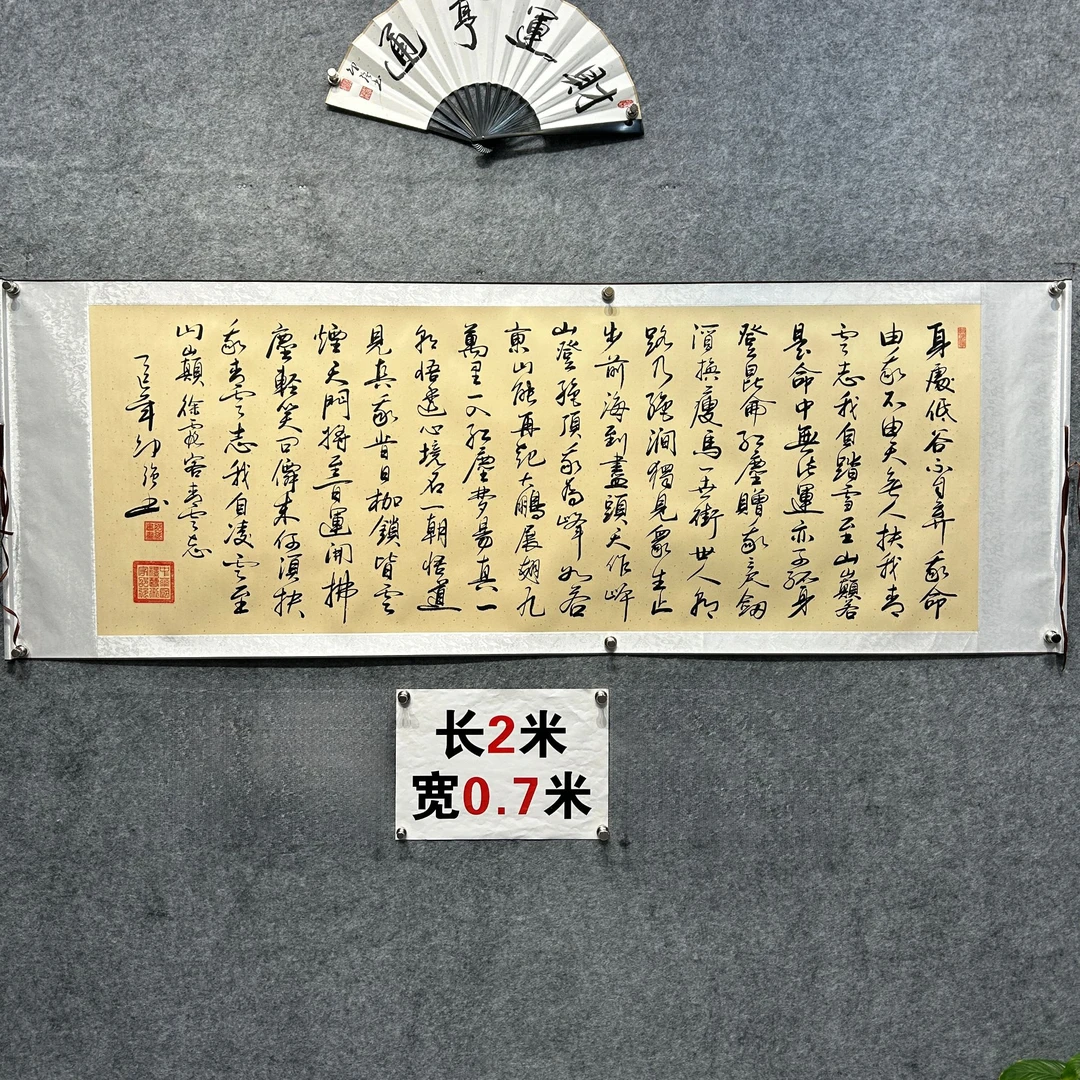 財運亨通
身處低谷不自棄我命
由我不由天無人扶我青
雲志我自踏雪至山巔若
是命中無此運亦可孤身
登昆侖紅塵贈我三尺劍
酒換瘦馬一世銜世人朝
路乃絕澗獨見眾生止
步前海到盡頭天作岸
山登絕頂我為峰如若
東山能再起大鵬展翅九
萬里一入紅塵夢易真一
朝悟透心境名一朝悟道
見真我昔日枷鎖皆雲
煙天門將至百運開拂
塵輕笑問僊來何須扶
我青雲志我自凌雲至
山巔徐霞客青雲志
长2米
宽0.7米